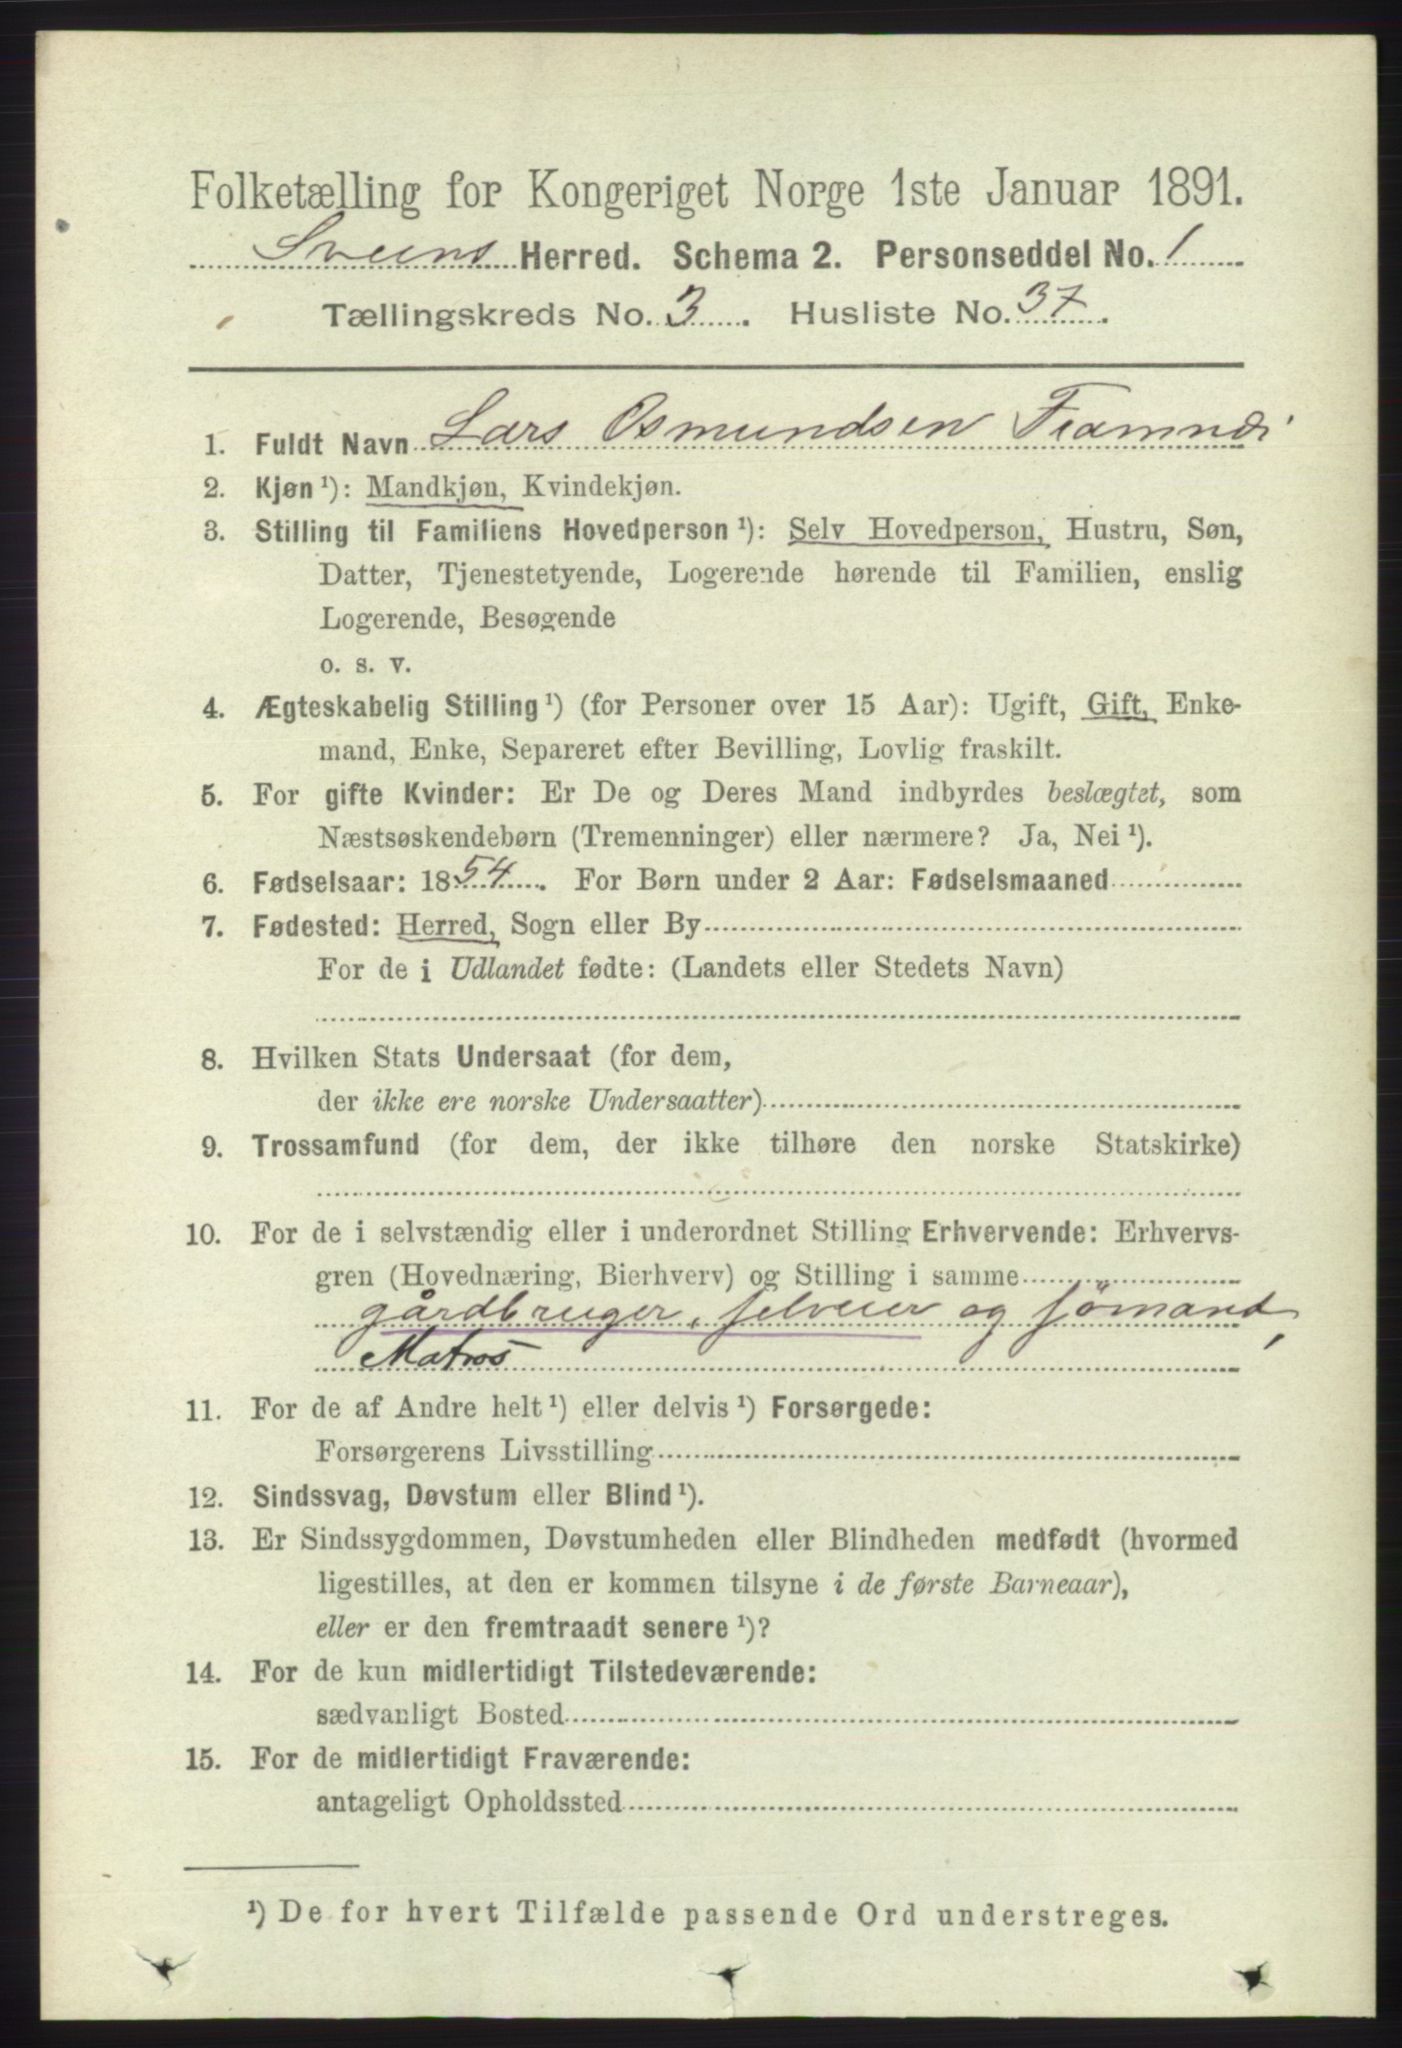 Folketælling for Kongeriget Norge 1ste Januar 1891.
Sveens Herred. Schema 2. Personseddel No. 1
Tællingskreds No. 3. Husliste No. 37.
1. Fuldt Navn Lars Osmundsen Framnæs
2. Kjøn¹): Mandkjøn, Kvindekjøn.
3. Stilling til Familiens Hovedperson¹): Selv Hovedperson, Hustru, Søn,
Datter, Tjenestetyende, Logerende hørende til Familien, enslig
Logerende, Besøgende
o. s. v.
4. Ægteskabelig Stilling¹) (for Personer over 15 Aar): Ugift, Gift, Enke-
mand, Enke, Separeret efter Bevilling, Lovlig fraskilt.
5. For gifte Kvinder: Er De og Deres Mand indbyrdes beslægtet, som
Næstsøskendebørn (Tremenninger) eller nærmere? Ja, Nei¹).
6. Fødselsaar: 1854. For Børn under 2 Aar: Fødselsmaaned
7. Fødested: Herred, Sogn eller By
For de i Udlandet fødte: (Landets eller Stedets Navn)
8. Hvilken Stats Undersaat (for dem,
der ikke ere norske Undersaatter)
9. Trossamfund (for dem, der ikke tilhøre den norske Statskirke)
10. For de i selvstændig eller i underordnet Stilling Erhvervende: Erhvervs-
gren (Hovednæring, Bierhverv) og Stilling i samme
gårdbruger, selveier og sømand,
Matros
11. For de af Andre helt¹) eller delvis¹) Forsørgede:
Forsørgerens Livsstilling
12. Sindssvag, Døvstum eller Blind¹).
13. Er Sindssygdommen, Døvstumheden eller Blindheden medfødt (hvormed
ligestilles, at den er kommen tilsyne i de første Barneaar),
eller er den fremtraadt senere¹)?
14. For de kun midlertidigt Tilstedeværende:
sædvanligt Bosted
15. For de midlertidigt Fraværende:
antageligt Opholdssted
¹) De for hvert Tilfælde passende Ord understreges.